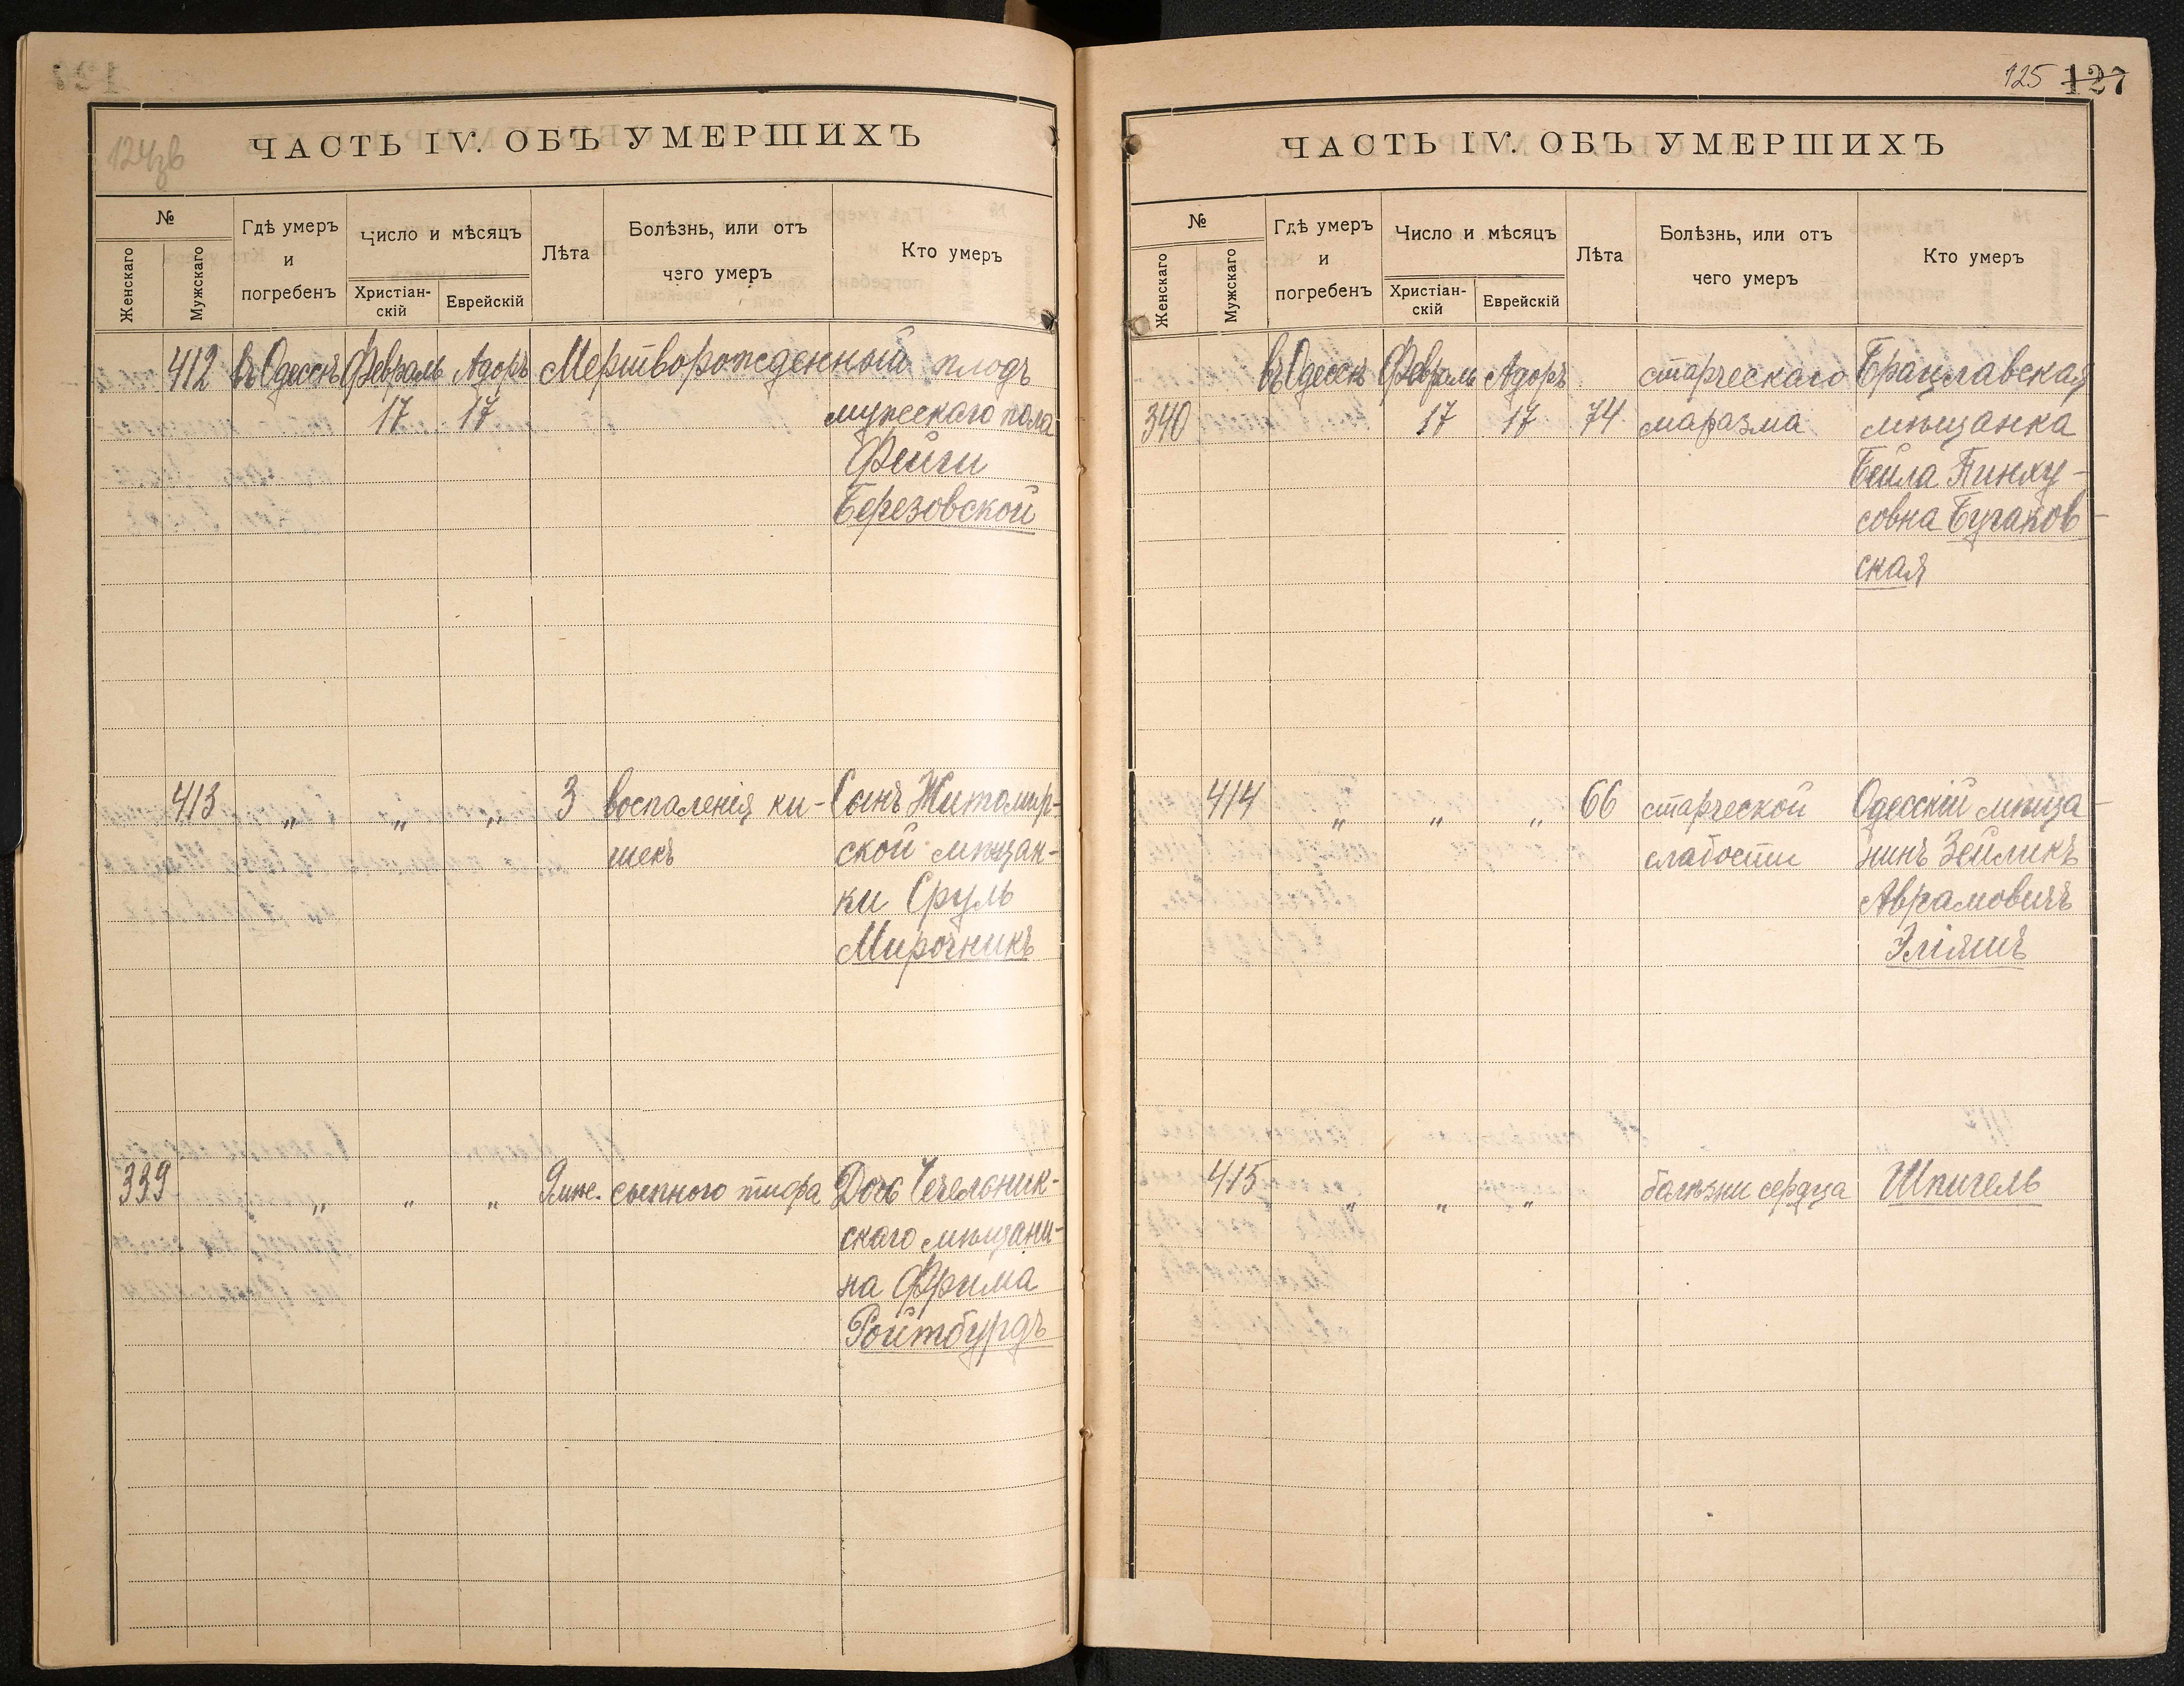 124зв
ЧАСТЬ IV. ОБЪ УМЕРШИХЪ
№
Женскаго
Мужскаго
Гдѣ умеръ
и
погребенъ
Число и мѣсяцъ
Христіан-
скій
Еврейскій
Лѣта
Болѣзнь, или отъ
чего умеръ
Кто умеръ
412 въ Одессѣ Февраль Адоръ Мертворожденный плодъ
17 17 мужескаго пола
Фейги
Березовской
413 „ „ „ 3 воспаленія ки- Сынъ Житомир-
шекъ ской мѣщан-
ки Сруль
Мирочникъ
339 „ „ „ 9 мѣс. сыпного тифа Дочь Чечельник-
скаго мѣщани-
на Фрима
Ройтбурдъ
125 127
ЧАСТЬ IV. ОБЪ УМЕРШИХЪ
№
Женскаго
Мужскаго
Гдѣ умеръ
и
погребенъ
Число и мѣсяцъ
Христіан-
скій
Еврейскій
Лѣта
Болѣзнь, или отъ
чего умеръ
Кто умеръ
въ Одессѣ Февраль Адоръ старческаго Брацлавская
340 17 17 74 маразма мѣщанка
Бейла Пинху-
совна Бугаков-
ская
414 „ „ „ 66 старческой Одесскій мѣща-
слабости нинъ Зейликъ
Аврамовичъ
Эліяшъ
415 „ „ „ болѣзни сердца Шпигель